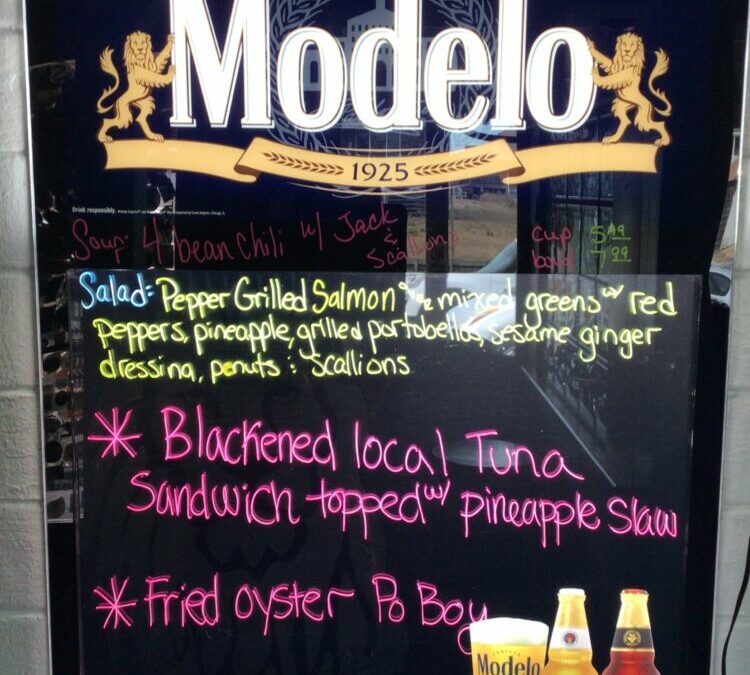 Modelo
1925
Drink responsibly.
Soup: 4 bean chili w/ Jack & Scallions cup 5.49
bowl 7.99
Salad: Pepper Grilled Salmon mixed greens w/ red
peppers, pineapple, grilled portabellos, sesame ginger
dressing, penuts : scallions
* Blackened local Tuna
Sandwich topped w/ pineapple Slaw
* Fried oyster Po Boy
Modelo